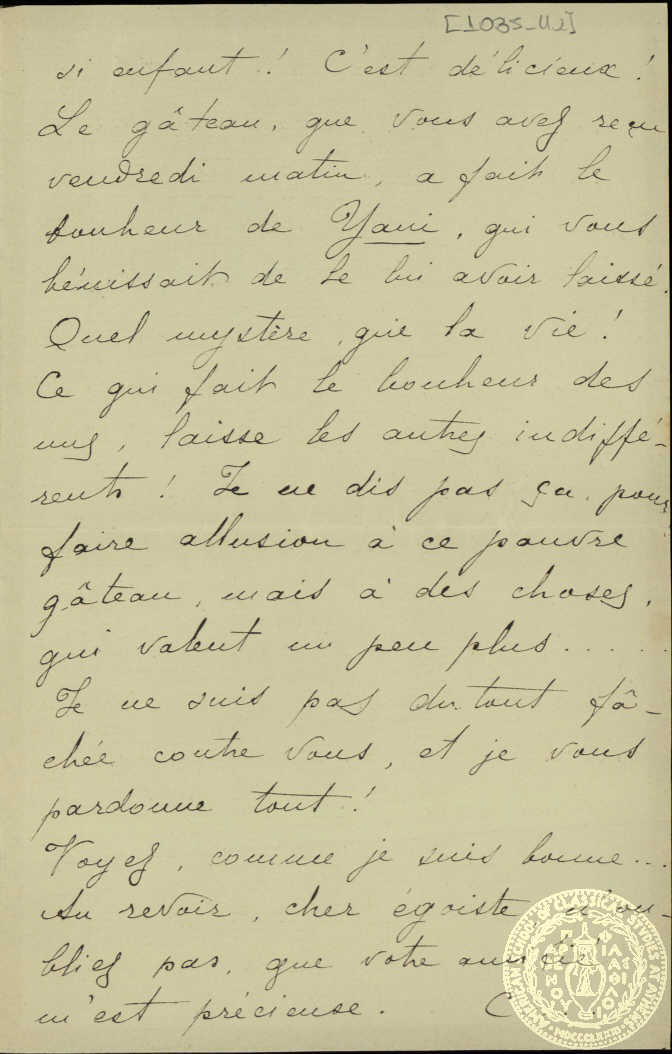 [1035-112]
si enfant! C'est délicieux!
Le gâteau, que vous avez reçu
vendredi matin, a fait le
bonheur de Yani, qui vous
bénissait de le lui avoir laissé.
Quel mystère, que la vie!
Ce qui fait le bonheur des
uns, laisse les autres indiffé-
rents! Je ne dis pas ça, pour
faire allusion à ce pauvre
gâteau, mais à des choses,
qui valent un peu plus.....
Je ne suis pas du tout fâ-
chée contre vous, et je vous
pardonne tout!
Voyez, comme je suis bonne...
Au revoir, cher égoiste, n'ou-
bliez pas, que votre amitié
m'est précieuse. C...
AMERICAN SCHOOL OF CLASSICAL STUDIES AT ATHENS